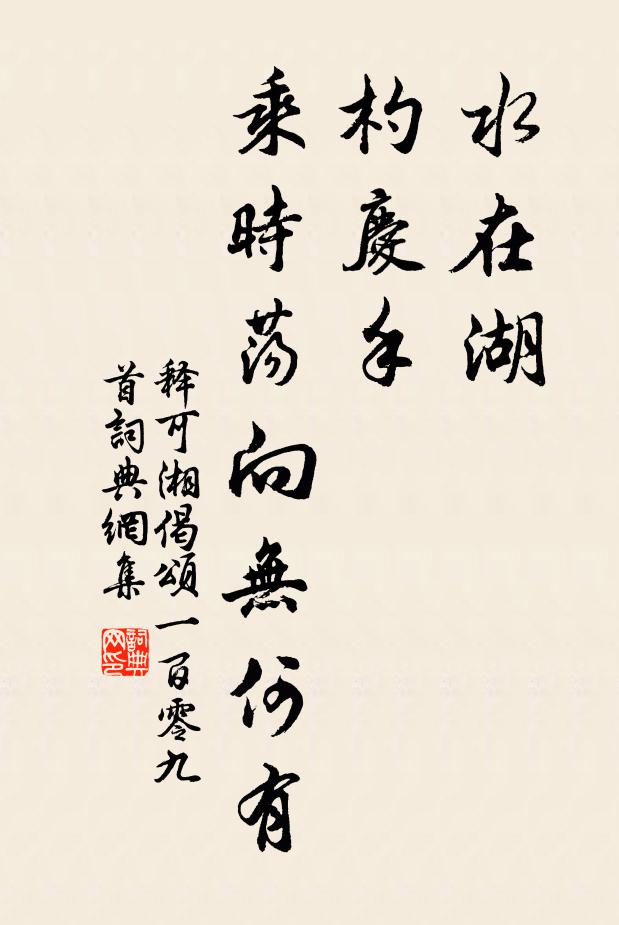 水在湖
杓慶手
乘時蕩向無何有
释可湘偈頌一百零九
首詞典網集
詞典网印